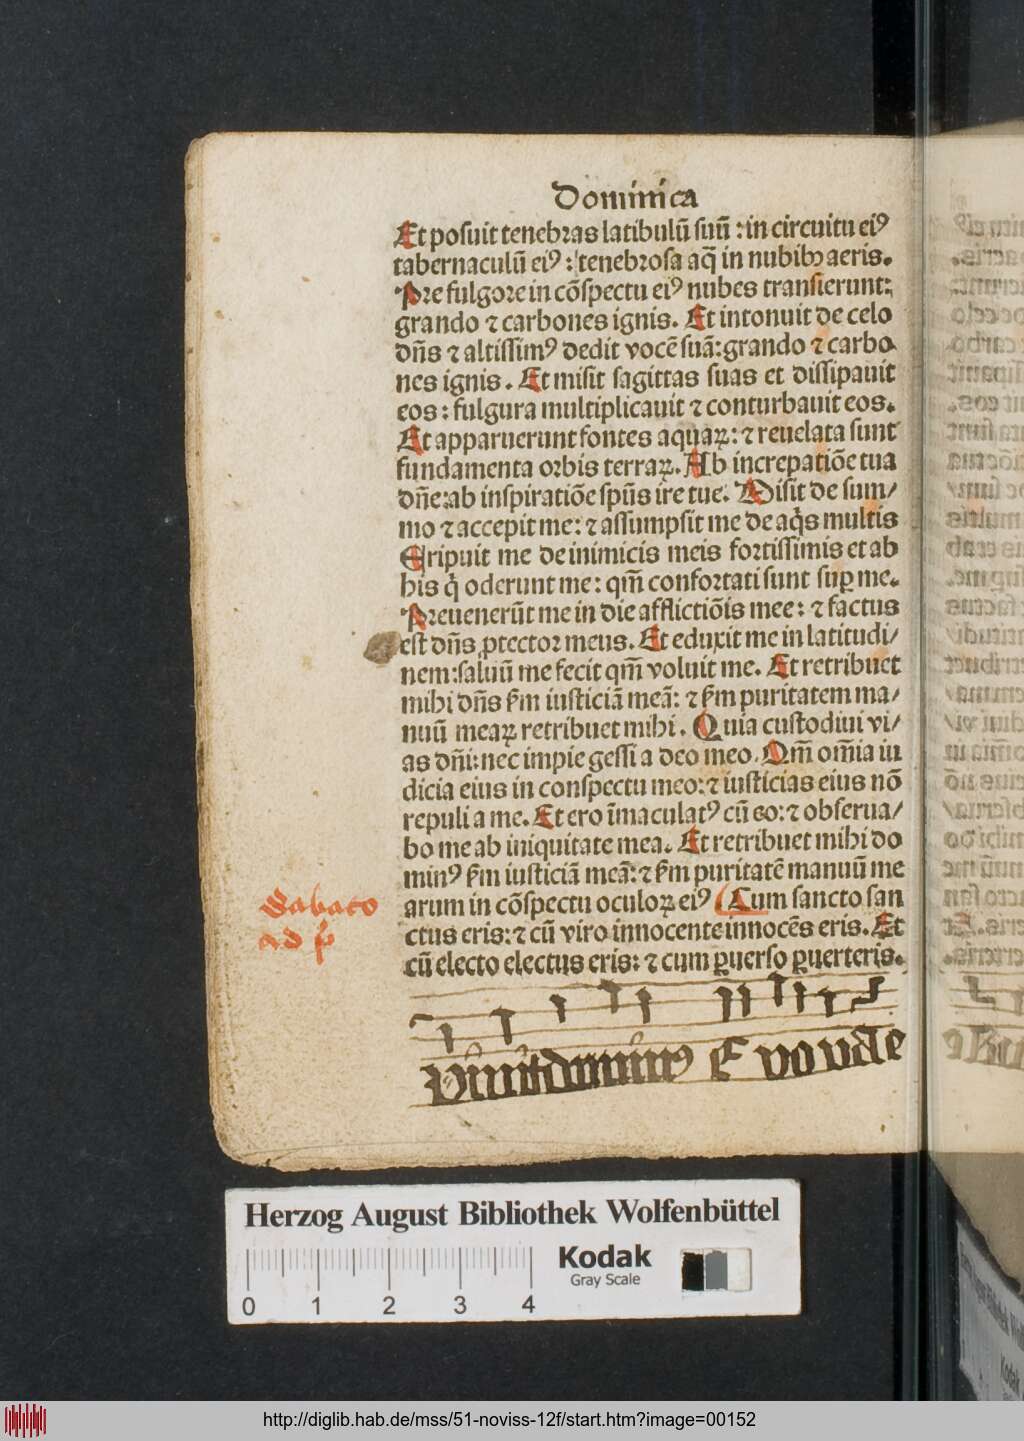 Dominica
Et posuit tenebras latibulū suū : in circuitu eiꝰ
tabernaculū eiꝰ : tenebrosa aq̄ in nubibꝫ aeris.
Pre fulgore in cōspectu eiꝰ nubes transierunt:
grando ⁊ carbones ignis. Et intonuit de celo
dn̄s ⁊ altissimꝰ dedit vocē suā: grando ⁊ carbo
nes ignis. Et misit sagittas suas et dissipauit
eos : fulgura multiplicauit ⁊ conturbauit eos.
Et apparuerunt fontes aquaꝝ: ⁊ reuelata sunt
fundamenta orbis terraꝝ. Ab increpatiōe tua
dn̄e: ab inspiratiōe spūs ire tue. Misit de sum/
mo ⁊ accepit me: ⁊ assumpsit me de aq̄s multis
Eripuit me de inimicis meis fortissimis et ab
his q̄ oderunt me: qm̄ confortati sunt suꝑ me.
Preuenerūt me in die afflictiōis mee: ⁊ factus
est dn̄s ꝓtector meus. Et eduxit me in latitudi/
nem: saluū me fecit qm̄ voluit me. Et retribuet
mihi dn̄s ẜm iusticiā meā: ⁊ ẜm puritatem ma/
nuū meaꝝ retribuet mihi. Quia custodiui vi/
as dn̄i: nec impie gessi a deo meo. Qm̄ om̄ia iu
dicia eius in conspectu meo: ⁊ iusticias eius nō
repuli a me. Et ero īmaculatꝰ cū eo: ⁊ obserua/
bo me ab iniquitate mea. Et retribuet mihi do
minꝰ ẜm iusticiā meā: ⁊ ẜm puritatē manuū me
arum in cōspectu oculoꝝ eiꝰ. Cum sancto san
ctus eris: ⁊ cū viro innocente innocēs eris. Et
cū electo electus eris: ⁊ cum ꝑuerso ꝑuerteris.
Sabato
ad p̄
Viuit dominus E vo vae
Herzog August Bibliothek Wolfenbüttel
Kodak
Gray Scale
0 1 2 3 4
http://diglib.hab.de/mss/51-noviss-12f/start.htm?image=00152